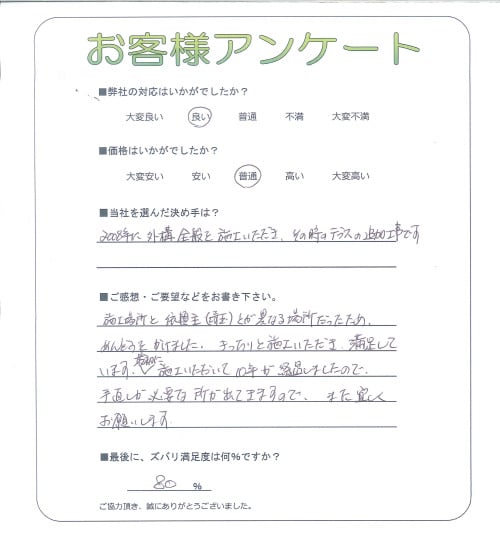 お客様アンケート
■弊社の対応はいかがでしたか？
大変良い 良い 普通 不満 大変不満
■価格はいかがでしたか？
大変安い 安い 普通 高い 大変高い
■当社を選んだ決め手は？
2008年に外構全般を施工いただき、その時のテラスの追加工事です
■ご感想・ご要望などをお書き下さい。
施工場所と依頼主(施主)とが異なる場所だったため、
めんどうをかけました。きっちりと施工いただき、満足して
います。施工いただいて10年が経過しましたので、
手直しが必要な所が出てきますので、また宜しく
お願いします。
■最後に、ズバリ満足度は何%ですか？
80 %
ご協力頂き、誠にありがとうございました。